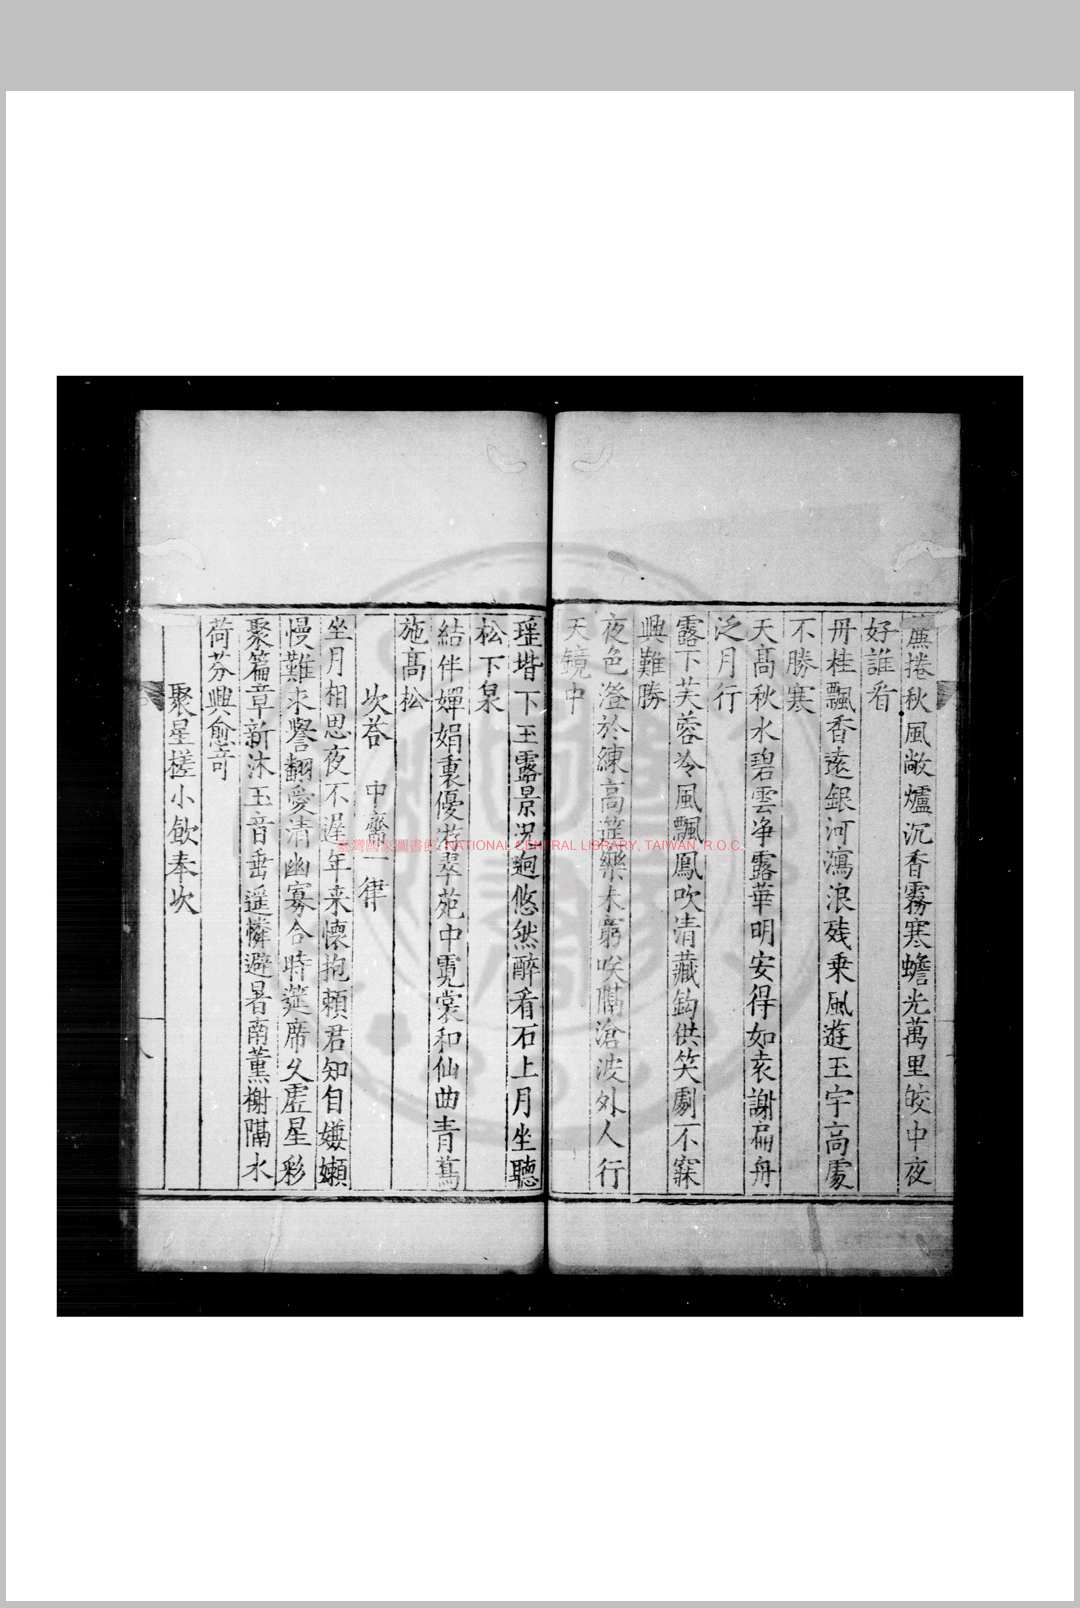 簾捲秋風敞爐沉香霧寒蟾光萬里皎中夜
好誰看
丹桂飄香遠銀河瀉浪殘乗風遊玉宇高處
不勝寒
天髙秋水碧雲净露華明安得如袁謝扁舟
泛月行
露下芙蓉冷風飄鳳吹清藏鈎供笑劇不寐
興難勝
夜色澄於練高筵樂未窮唉隔滄波外人行
天鏡中
瑶堦下玉露景况迥悠然醉看石上月坐聽
松下泉
結伴嬋娟裏優游翠苑中霓裳和仙曲青蔦
施高松
坎荅 中齋一律
坐月相思夜不遲年来懐抱頼君知自嫌嬾
慢難求譽翻愛清幽寡合時筵席久虚星彩
聚篇章新沐玉音埀遥憐避暑南薫榭隔水
荷芬興愈竒
聚星槎小飲奉坎
臺灣國家圖書館, NATIONAL CENTRAL LIBRARY, TAIWAN, R.O.C.